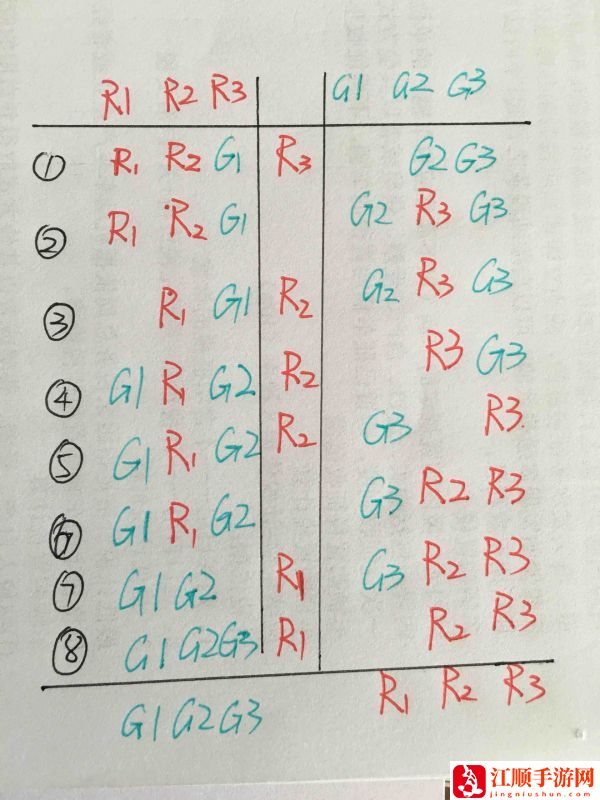 R1 R2 R3 G1 G2 G3
① R1 R2 G1 R3 G2 G3
② R1 R2 G1 G2 R3 G3
③ R1 G1 R2 G2 R3 G3
④ G1 R1 G2 R2 R3 G3
⑤ G1 R1 G2 R2 G3 R3
⑥ G1 R1 G2 G3 R2 R3
⑦ G1 G2 R1 G3 R2 R3
⑧ G1 G2 G3 R1 R2 R3
G1 G2 G3 R1 R2 R3
江顺手游网
jingniushun.com